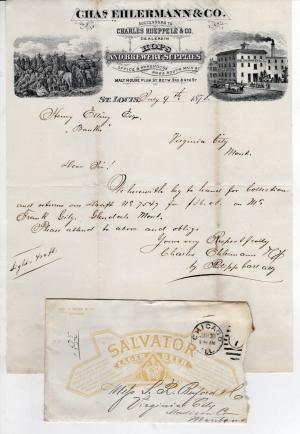 CHAS. EHLERMANN & CO.
SUCCESSORS TO
CHARLES HOEPPELE & CO.
DEALERS IN
HOPS
AND BREWERY SUPPLIES
OFFICE & WAREHOUSE
MALT HOUSE PLUM ST. BETW. 3RD & 4TH STS
ST. LOUIS, 9th 187
Henry Elling Esq.
Banker
Virginia City
Mont.
Dear Sir!
We herewith beg to hand for collection
and returns our Draft No 7547 for on Mr
Frank Gilg, Glendale Mont.
Please attend to above and oblige
Yours very Respectfully
Charles Ehlermann & Co
by
SALVATOR
LAGER BEER
CHICAGO
ILL
Mess. S. R. Buford & Co
Virginia City
Madison Co
Montana